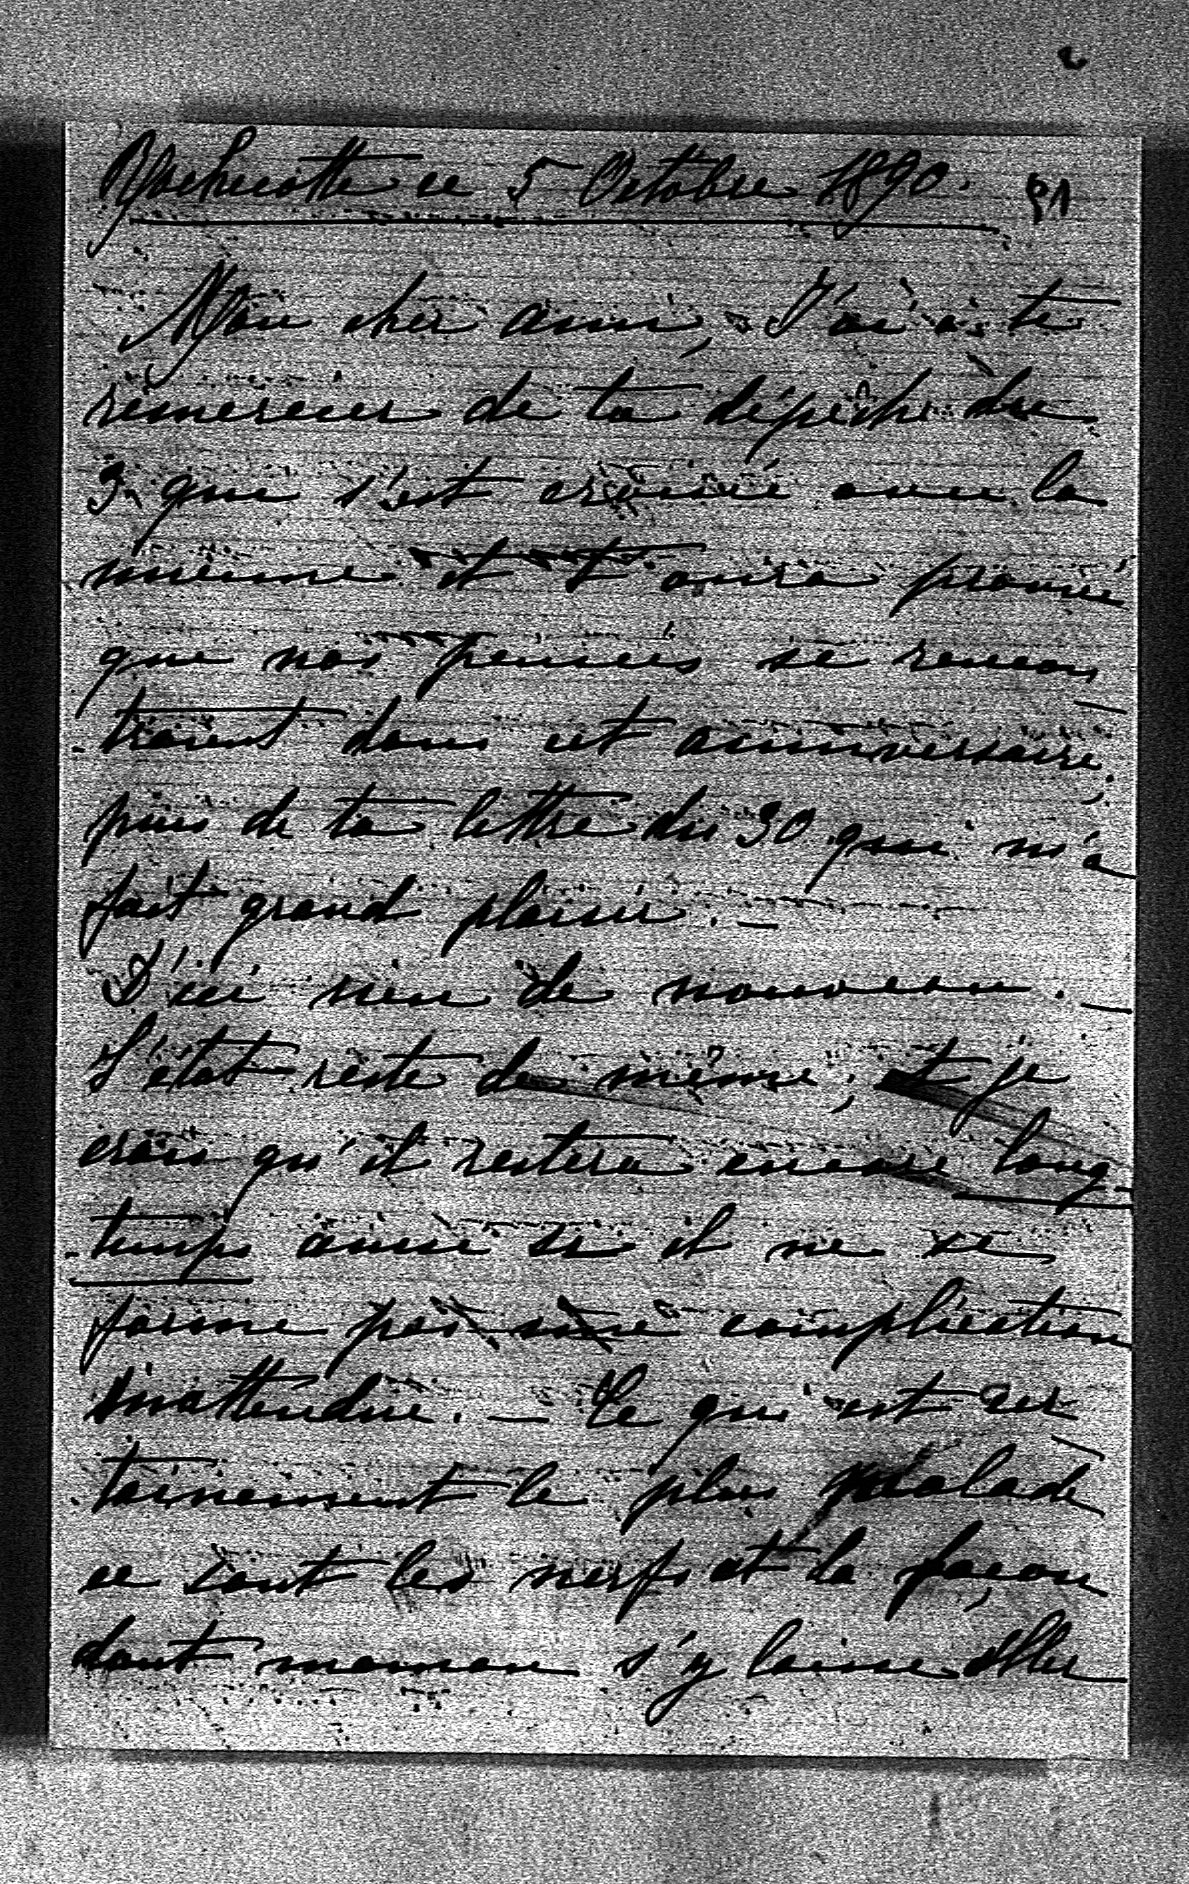 Rochecotte ce 5 Octobre 1890. 51
Mon cher ami, J'ai à te
remercier de ta dépêche du
3 qui s'est croisée avec la
mienne et t'aura prouvé
que nos pensées se rencon
-traient dans cet anniversaire;
puis de ta lettre du 30 qui m'a
fait grand plaisir. —
D'ici rien de nouveau. —
L'état reste de même, et je
crois qu'il restera encore long-
-temps ainsi si il ne se
forme pas une complication
inattendue. — Ce qui est cer
-tainement le plus malade
ce sont les nerfs et la façon
dont maman s'y laisse aller